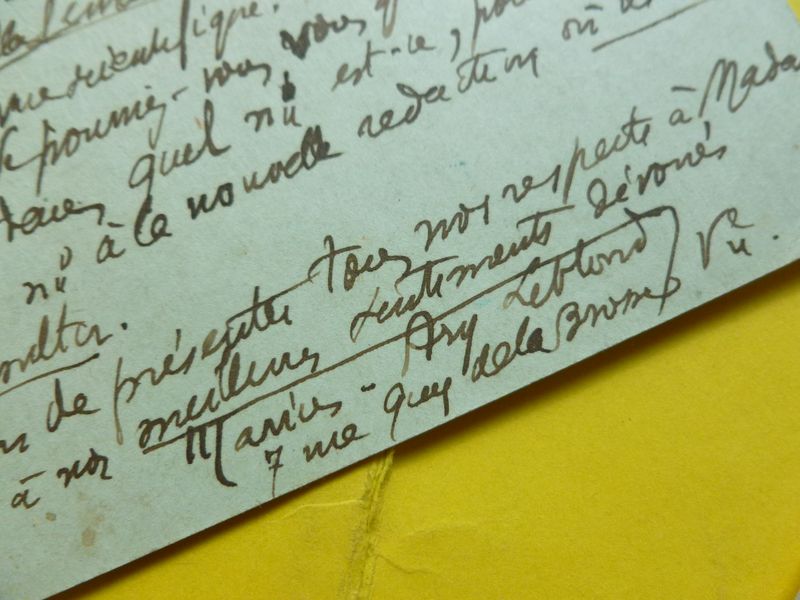 scientifique.
pourriez-vous vous
quel no est-ce, pour
no à la nouvelle rédaction où
de présenter tous nos respects à Mada
à nos meilleurs sentiments dévoués
Marius-Ary Leblond
7 rue Guy de la Brosse Ve.